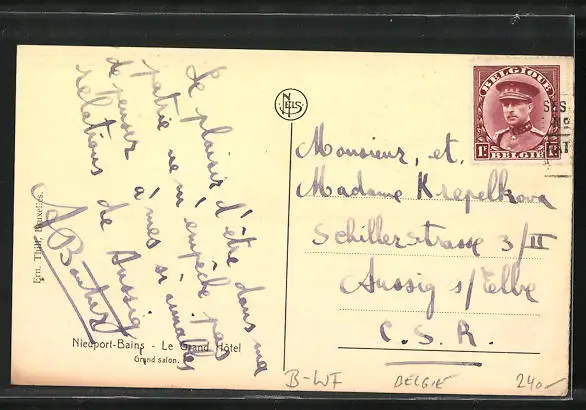 Le plaisir d'être dans ma
patrie ne m'empêche pas
de penser à mes si aimables
relations de Aussig.
Ern. Thill, Bruxelles.
Nieuport-Bains - Le Grand Hôtel
Grand salon.
NELS
Monsieur, et,
Madame Krepelkova
Schillerstrasse 3/II
Aussig s/Elbe
C. S. R.
BELGIQUE
1F
BELGIË
B-WF BELGIE 240.-